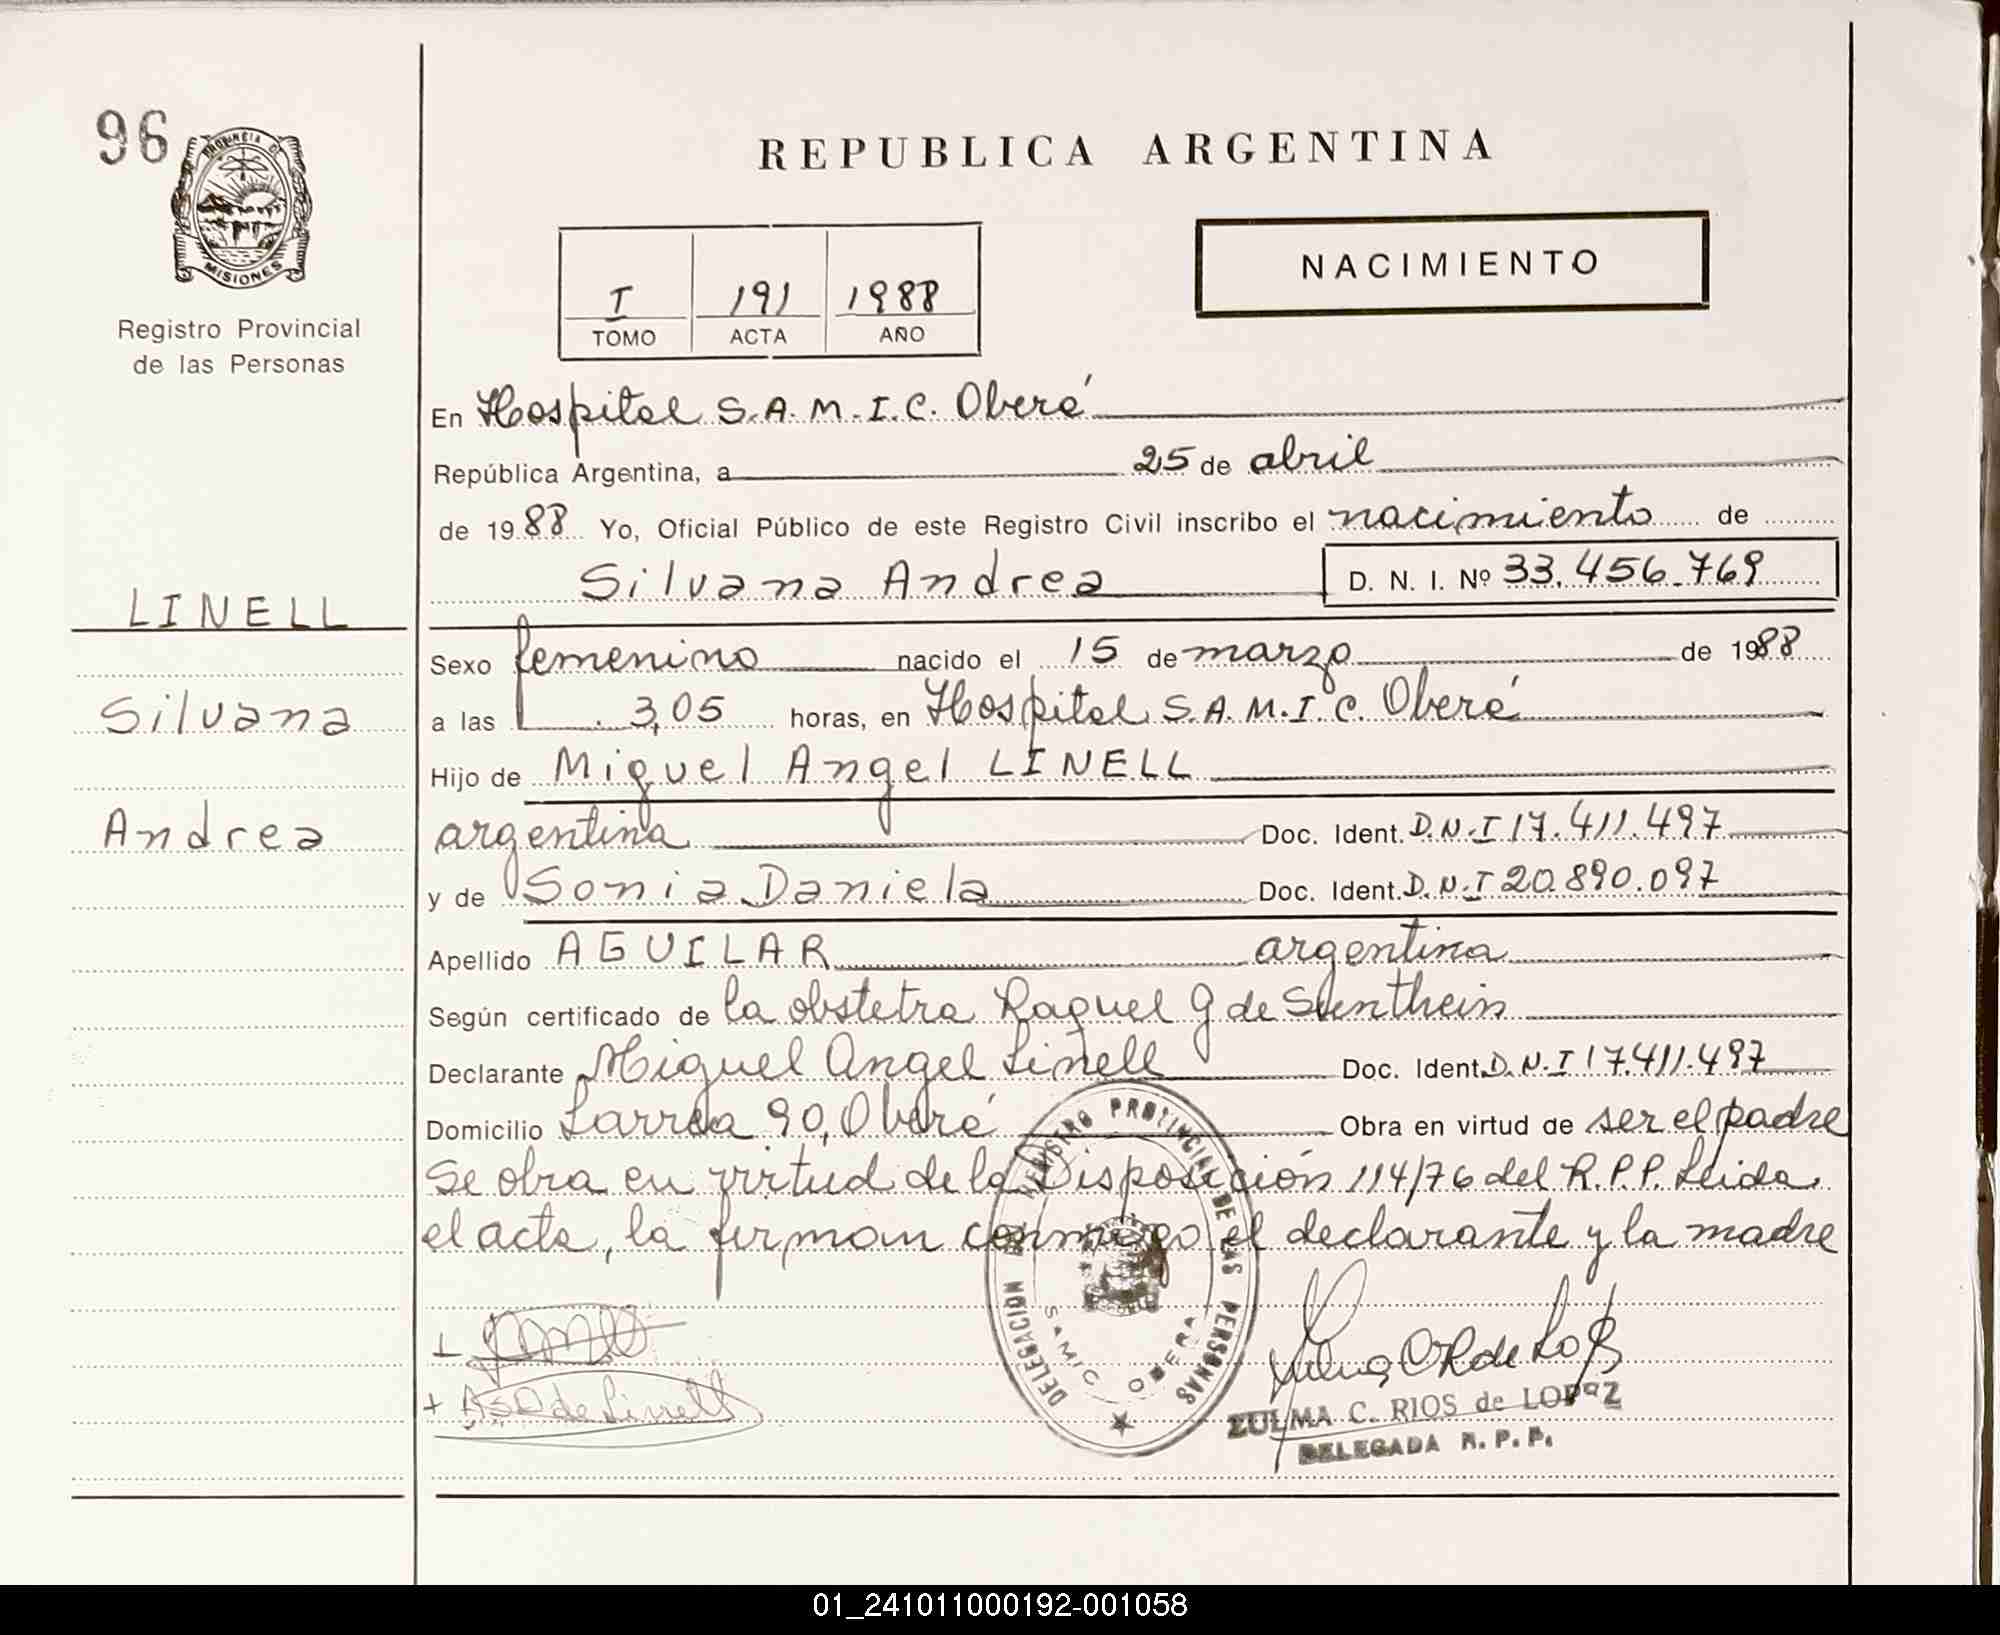 96
PROVINCIA DE
MISIONES
Registro Provincial
de las Personas
LINELL
Silvana
Andrea
REPUBLICA ARGENTINA
I 191 1988
TOMO ACTA AÑO
NACIMIENTO
En Hospital S.A.M.I.C. Oberá
República Argentina, a 25 de abril
de 1988 Yo, Oficial Público de este Registro Civil inscribo el nacimiento de
Silvana Andrea D. N. I. Nº 33.456.769
Sexo femenino nacido el 15 de marzo de 1988
a las 3,05 horas, en Hospital S.A.M.I.C. Oberá
Hijo de Miguel Angel LINELL
argentina Doc. Ident. D.N.I 17.411.497
y de Sonia Daniela Doc. Ident. D.N.I 20.890.097
Apellido AGUILAR argentina
Según certificado de la obstetra Raquel G de
Declarante Miguel Angel Linell Doc. Ident. D.N.I 17.411.497
Domicilio Larrea 90, Oberá Obra en virtud de ser el padre
Se obra en virtud de la Disposición 114/76 del R.P.P. Leida
el acta, la firman conmigo el declarante y la madre
DELEGACION REGISTRO PROVINCIAL DE LAS PERSONAS
SAMIC OBERA
de Linell
ZULMA C. RIOS de LOPEZ
DELEGADA R. P. P.
01_241011000192-001058